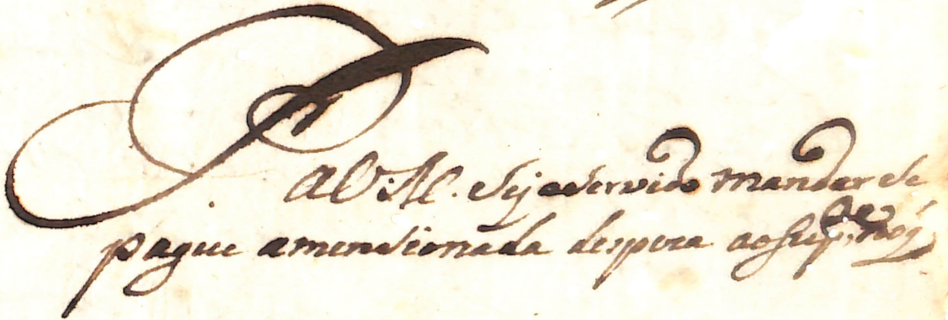 P
a V. M. Seja servido mandar se
pague a mensionada despeza ao Sup.e na